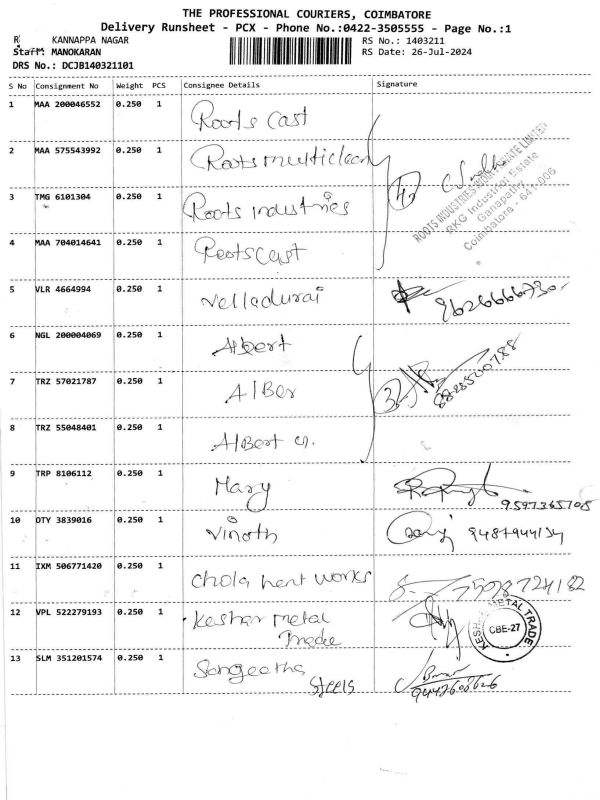 THE PROFESSIONAL COURIERS, COIMBATORE
Delivery Runsheet - PCX - Phone No.:0422-3505555 - Page No.:1
R: KANNAPPA NAGAR
RS No.: 1403211
Staff: MANOKARAN
RS Date: 26-Jul-2024
DRS No.: DCJB140321101
S No Consignment No Weight PCS Consignee Details Signature
1 MAA 200046552 0.250 1 Roots Cast
2 MAA 575543992 0.250 1 Roots multiclean
3 TMG 6101304 0.250 1 Roots industries
4 MAA 704014641 0.250 1 Roots Cast
ROOTS INDUSTRIES INDIA PRIVATE LIMITED
RKG Industrial Estate
Ganapathy
Coimbatore - 641 006
5 VLR 4664994 0.250 1 Velladurai 9626666730
6 NGL 200004069 0.250 1 Albert
7 TRZ 57021787 0.250 1 AlBer
8 TRZ 55048401 0.250 1 AlBert
9 TRP 8106112 0.250 1 Mary 9597365705
10 OTY 3839016 0.250 1 Vinoth
11 IXM 506771420 0.250 1 Chola hent works
12 VPL 522279193 0.250 1 Keshar metal
Trade
KESHAR METAL TRADE
CBE-27
13 SLM 351201574 0.250 1 Sangeetha
Steels